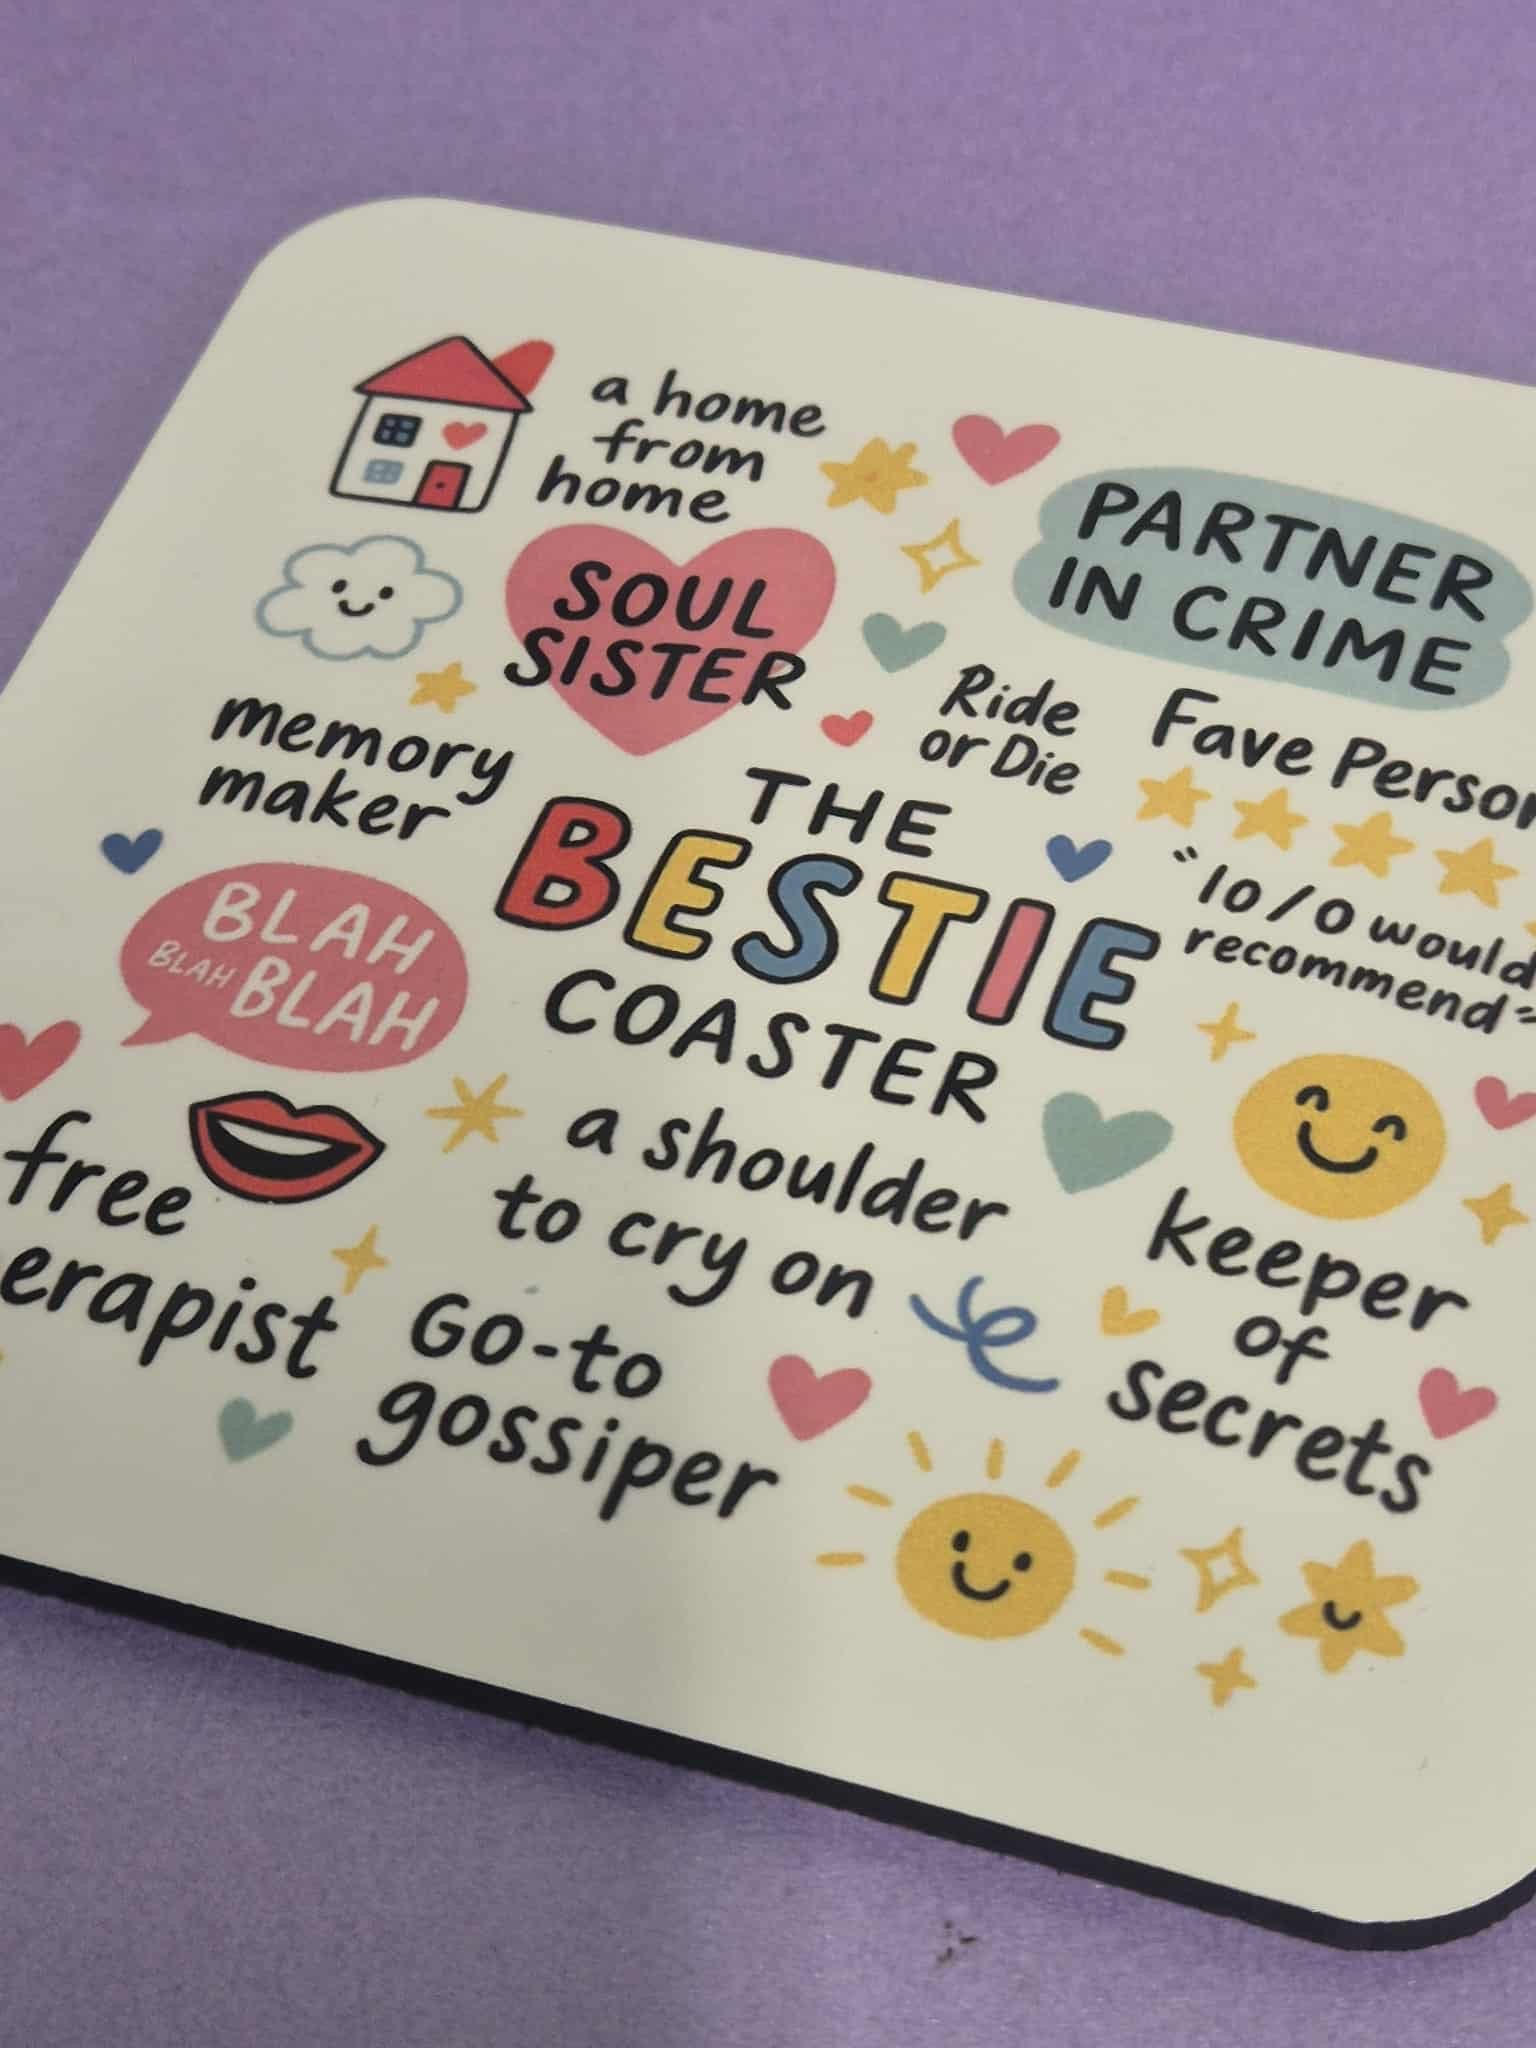 a home
from
home
SOUL
SISTER
PARTNER
IN CRIME
Ride
or Die
Fave Person
memory
maker
THE
BESTIE
COASTER
"10/0 would
recommend"
BLAH
BLAH BLAH
free
erapist
a shoulder
to cry on
keeper
of
secrets
Go-to
gossiper